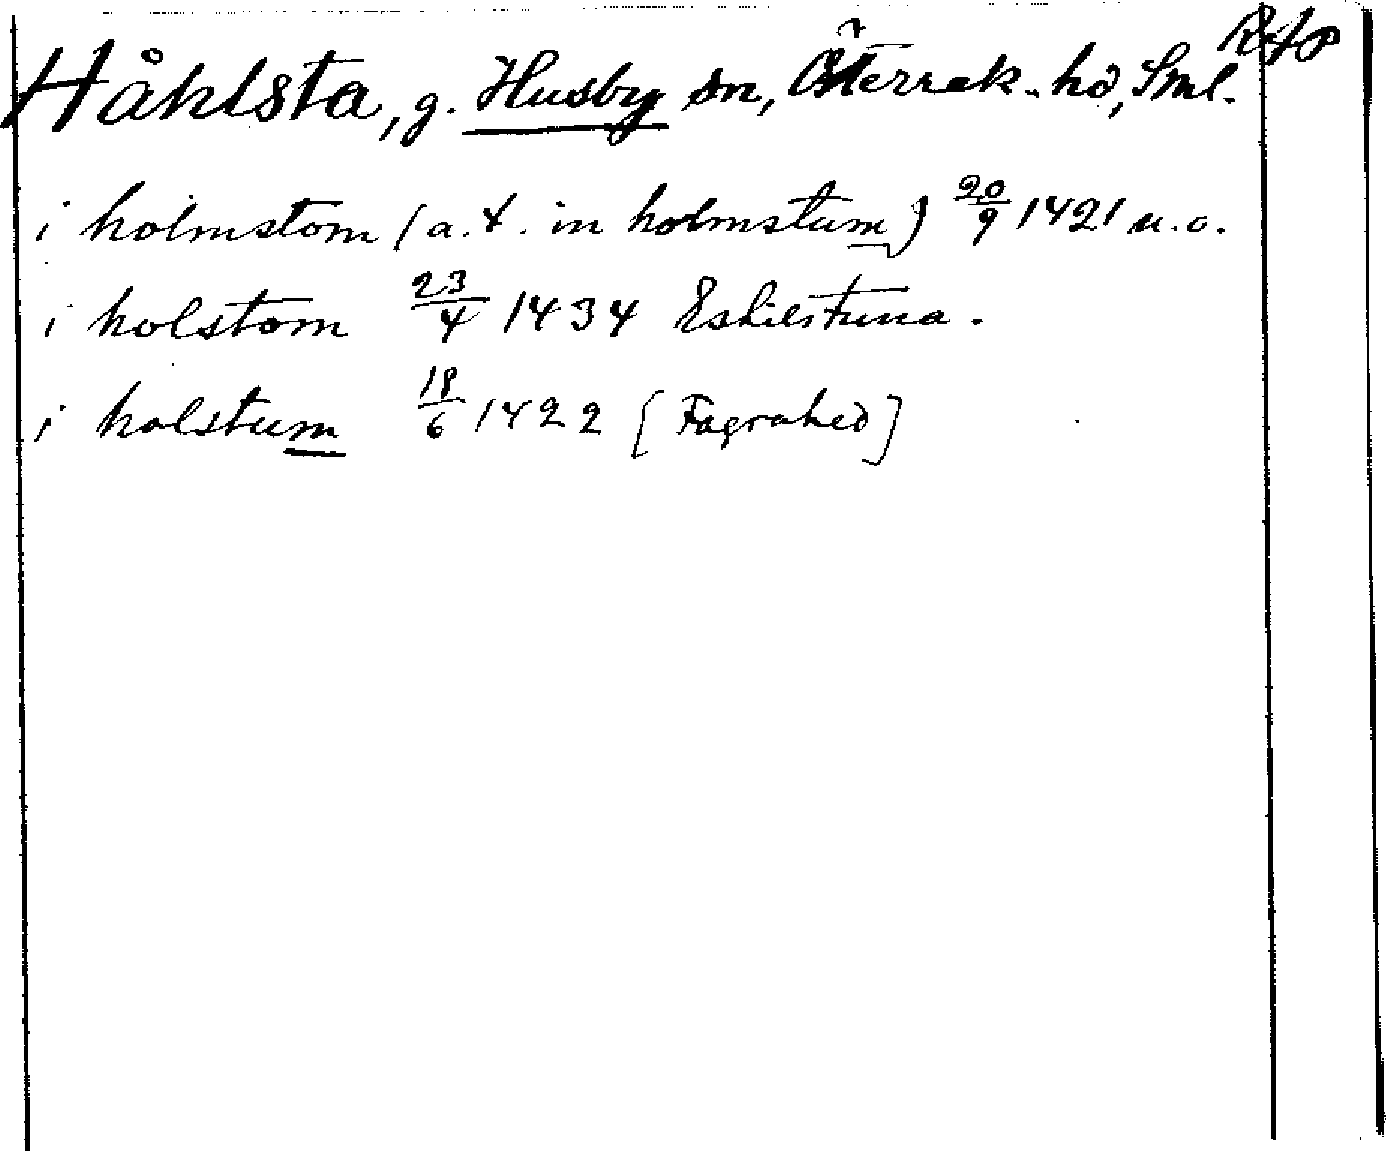 RAp
Håhlsta, g. Husby sn, Österrek. hd, Sml.
i holmstom (a.t. in holmstum) 20/9 1421 u.o.
i holstom 23/4 1434 Eskilstuna.
i holstum 18/6 1422 [Fagrahed]